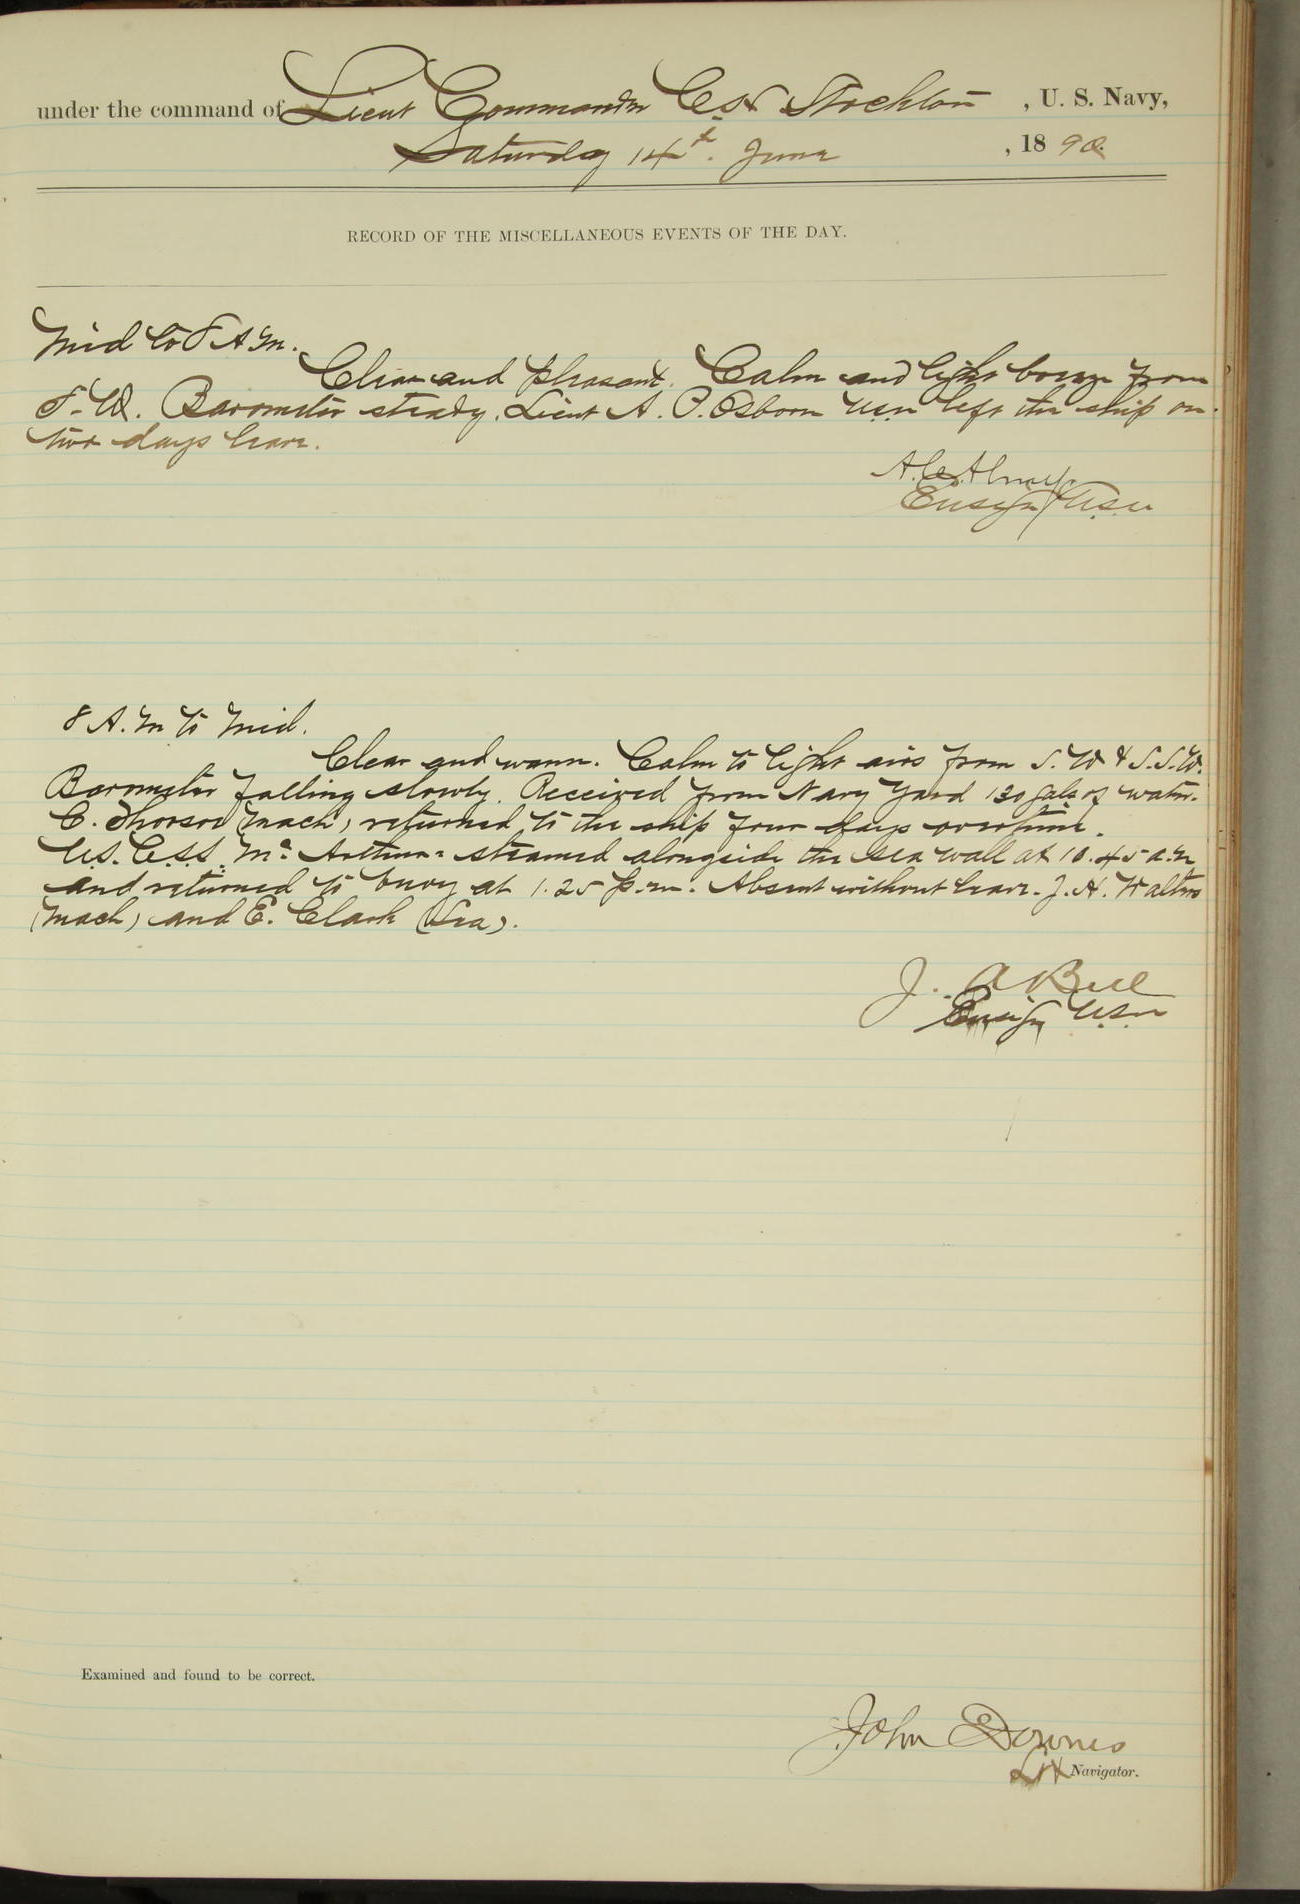 under the command of Lieut Commander C.H. Stockton, U. S. Navy,
Saturday 14th. June, 1890.
RECORD OF THE MISCELLANEOUS EVENTS OF THE DAY.
Mid to 8 A.M.
Clear and pleasant. Calm and light breeze from
S.W. Barometer steady. Lieut A. P. Osborn U.S.N left the ship on
two days leave.
A. C. Almy
Ensign U.S.N
8 A.M to Mid.
Clear and warm. Calm to light airs from S.W & S.S.W.
Barometer falling slowly. Received from Navy Yard 130 gals of water.
C. (Mach) returned to the ship four days overtime.
U.S.C.S.S. Mc Arthur steamed alongside the sea wall at 10.45 a.m
and returned to buoy at 1.25 p.m. Absent without leave. J. H. Walters
(Mach) and E. Clark (Sea).
J. A Bell
Ensign U.S.N
Examined and found to be correct.
John Downes
Lt Navigator.